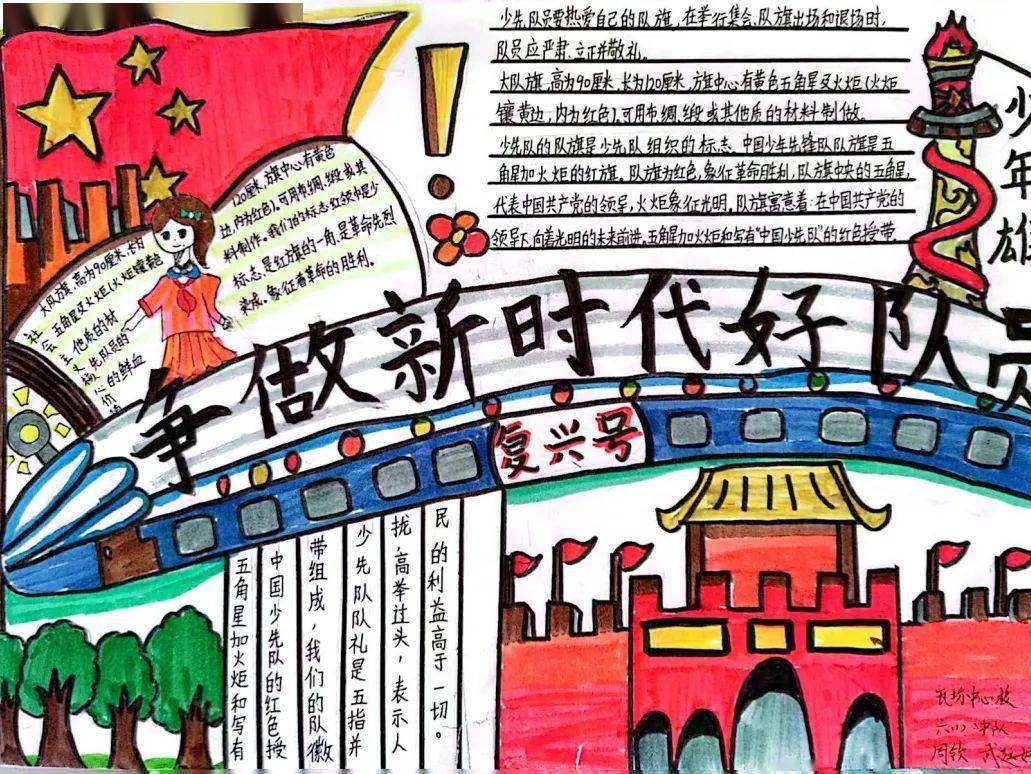 少先队员要热爱自己的队旗,在举行集会、队旗出场和退场时,
队员应严肃、立正并敬礼。
大队旗,高为90厘米,长为120厘米,旗中心有黄色五角星及火炬(火炬
镶黄边,内为红色),可用布绸、缎或其他质的材料制做。
少先队的队旗是少先队组织的标志、中国少年先锋队队旗是五
角星加火炬的红旗。队旗为红色,象征革命胜利,队旗中央的五角星,
代表中国共产党的领导,火炬象征光明。队旗寓意着:在中国共产党的
领导下,向着光明的未来前进,五角星加火炬和写有“中国少先队”的红色授带
少年雄
120厘米,旗中心有黄色
边,内为红色),可用布绸、缎或其
料制作。我们的标志红领巾是少
标志,是红旗的一角,是革命先烈
染成,象征着革命的胜利。
大队旗,高为90厘米,长为
五角星及火炬(火炬镶黄
他质的材
先队员的
的鲜血
社会主
心价
争做新时代好队员
复兴号
民的利益高于一切。
扰,高举过头,表示人
少先队队礼是五指并
带组成,我们的队徽
中国少先队的红色授
五角星加火炬和写有
瓦坊中心校
六(1)中队
周钦